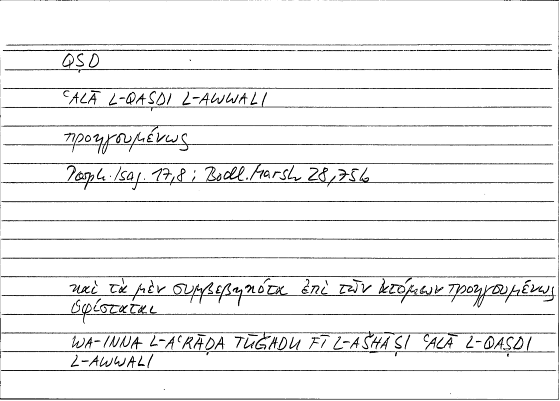 QṢD
ʿALĀ L-QAṢDI L-AWWALI
προηγουμένως
Porph. Isag. 17,8; Bodl. Marsh 28,75b
καὶ τὰ μὲν συμβεβηκότα ἐπὶ τῶν ἀτόμων προηγουμένως
ὑφίσταται
WA-INNA L-AʿRĀḌA TŪǦADU FĪ L-AŠḪĀṢI ʿALĀ L-QAṢDI
L-AWWALI